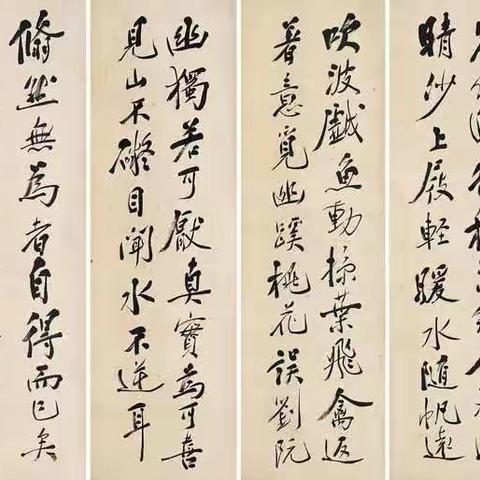 晴沙上屐輕暖水隨帆遠
吹波戲魚動掠葉飛禽返
著意覓幽蹊桃花誤劉阮
幽獨若可厭真實為可喜
見山不礙目聞水不逆耳
翛然無為者自得而已矣